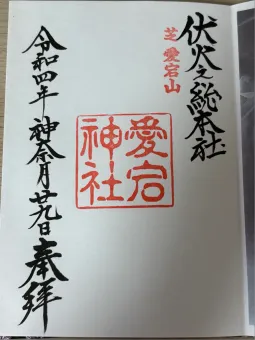 伏火之総本社
芝 愛宕山
愛宕神社
令和四年神奈月廿九日
奉拝